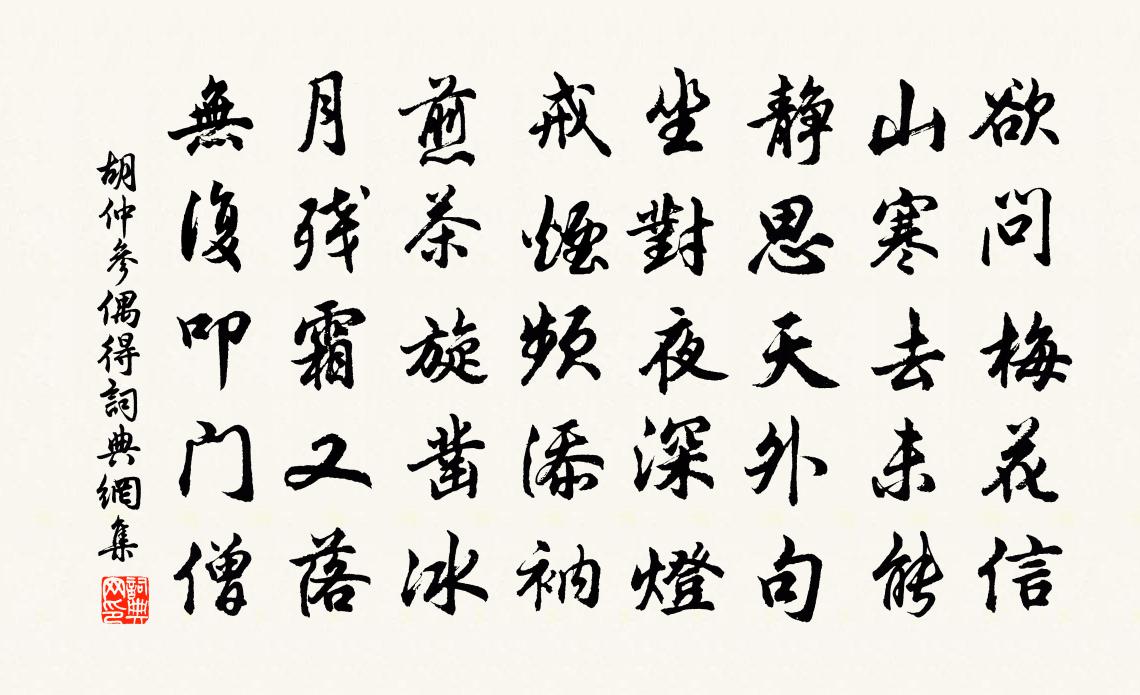 欲问梅花信
山寒去未能
静思天外句
坐對夜深燈
戒煙频添衲
煎茶旋凿冰
月残霜又落
無復叩门僧
胡仲參偶得詞典網集
詞典网印